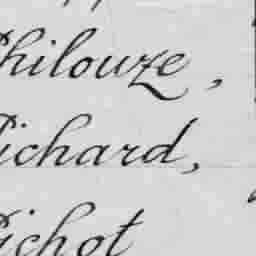 Philouze,
Richard,
Pichot